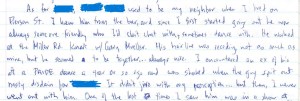 As for used to be my neighbor when I lived on
Person St. I knew him from the bar, and since I first started going out he was
always someone friendly who I'd chat with, sometimes dance with. He worked
at the Miller Rd. with Gary Miller. His hairline was receding not as much as
mine, but he seemed to be together, always nice. I encountered an ex of his
at a PRIDE dance a year or so ago and was shocked when the guy spit out
nasty disdain for It didn't jive with my perception... but then, I never
went out with him. One of the last times I saw him was in a show at